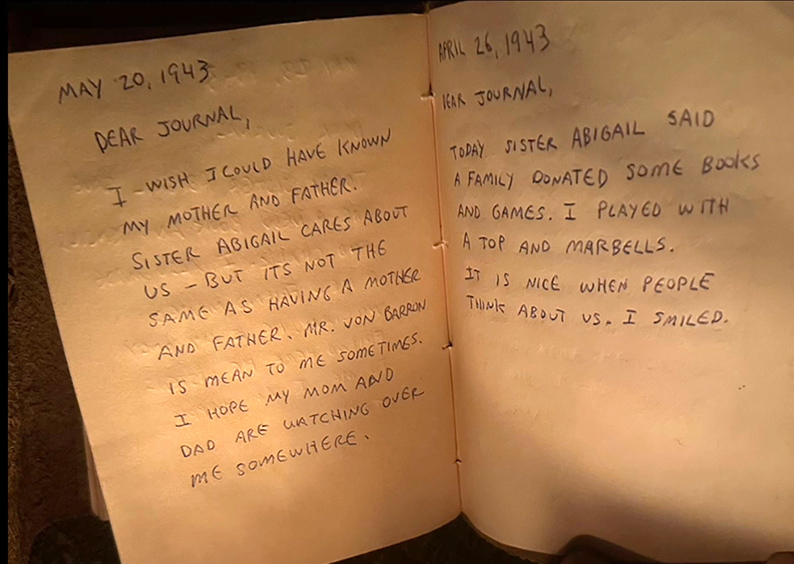 MAY 20, 1943
DEAR JOURNAL,
I WISH I COULD HAVE KNOWN
MY MOTHER AND FATHER.
SISTER ABIGAIL CARES ABOUT
US - BUT ITS NOT THE
SAME AS HAVING A MOTHER
AND FATHER. MR. VON BARRON
IS MEAN TO ME SOMETIMES.
I HOPE MY MOM AND
DAD ARE WATCHING OVER
ME SOMEWHERE.
APRIL 26, 1943
DEAR JOURNAL,
TODAY SISTER ABIGAIL SAID
A FAMILY DONATED SOME BOOKS
AND GAMES. I PLAYED WITH
A TOP AND MARBELLS.
IT IS NICE WHEN PEOPLE
THINK ABOUT US. I SMILED.